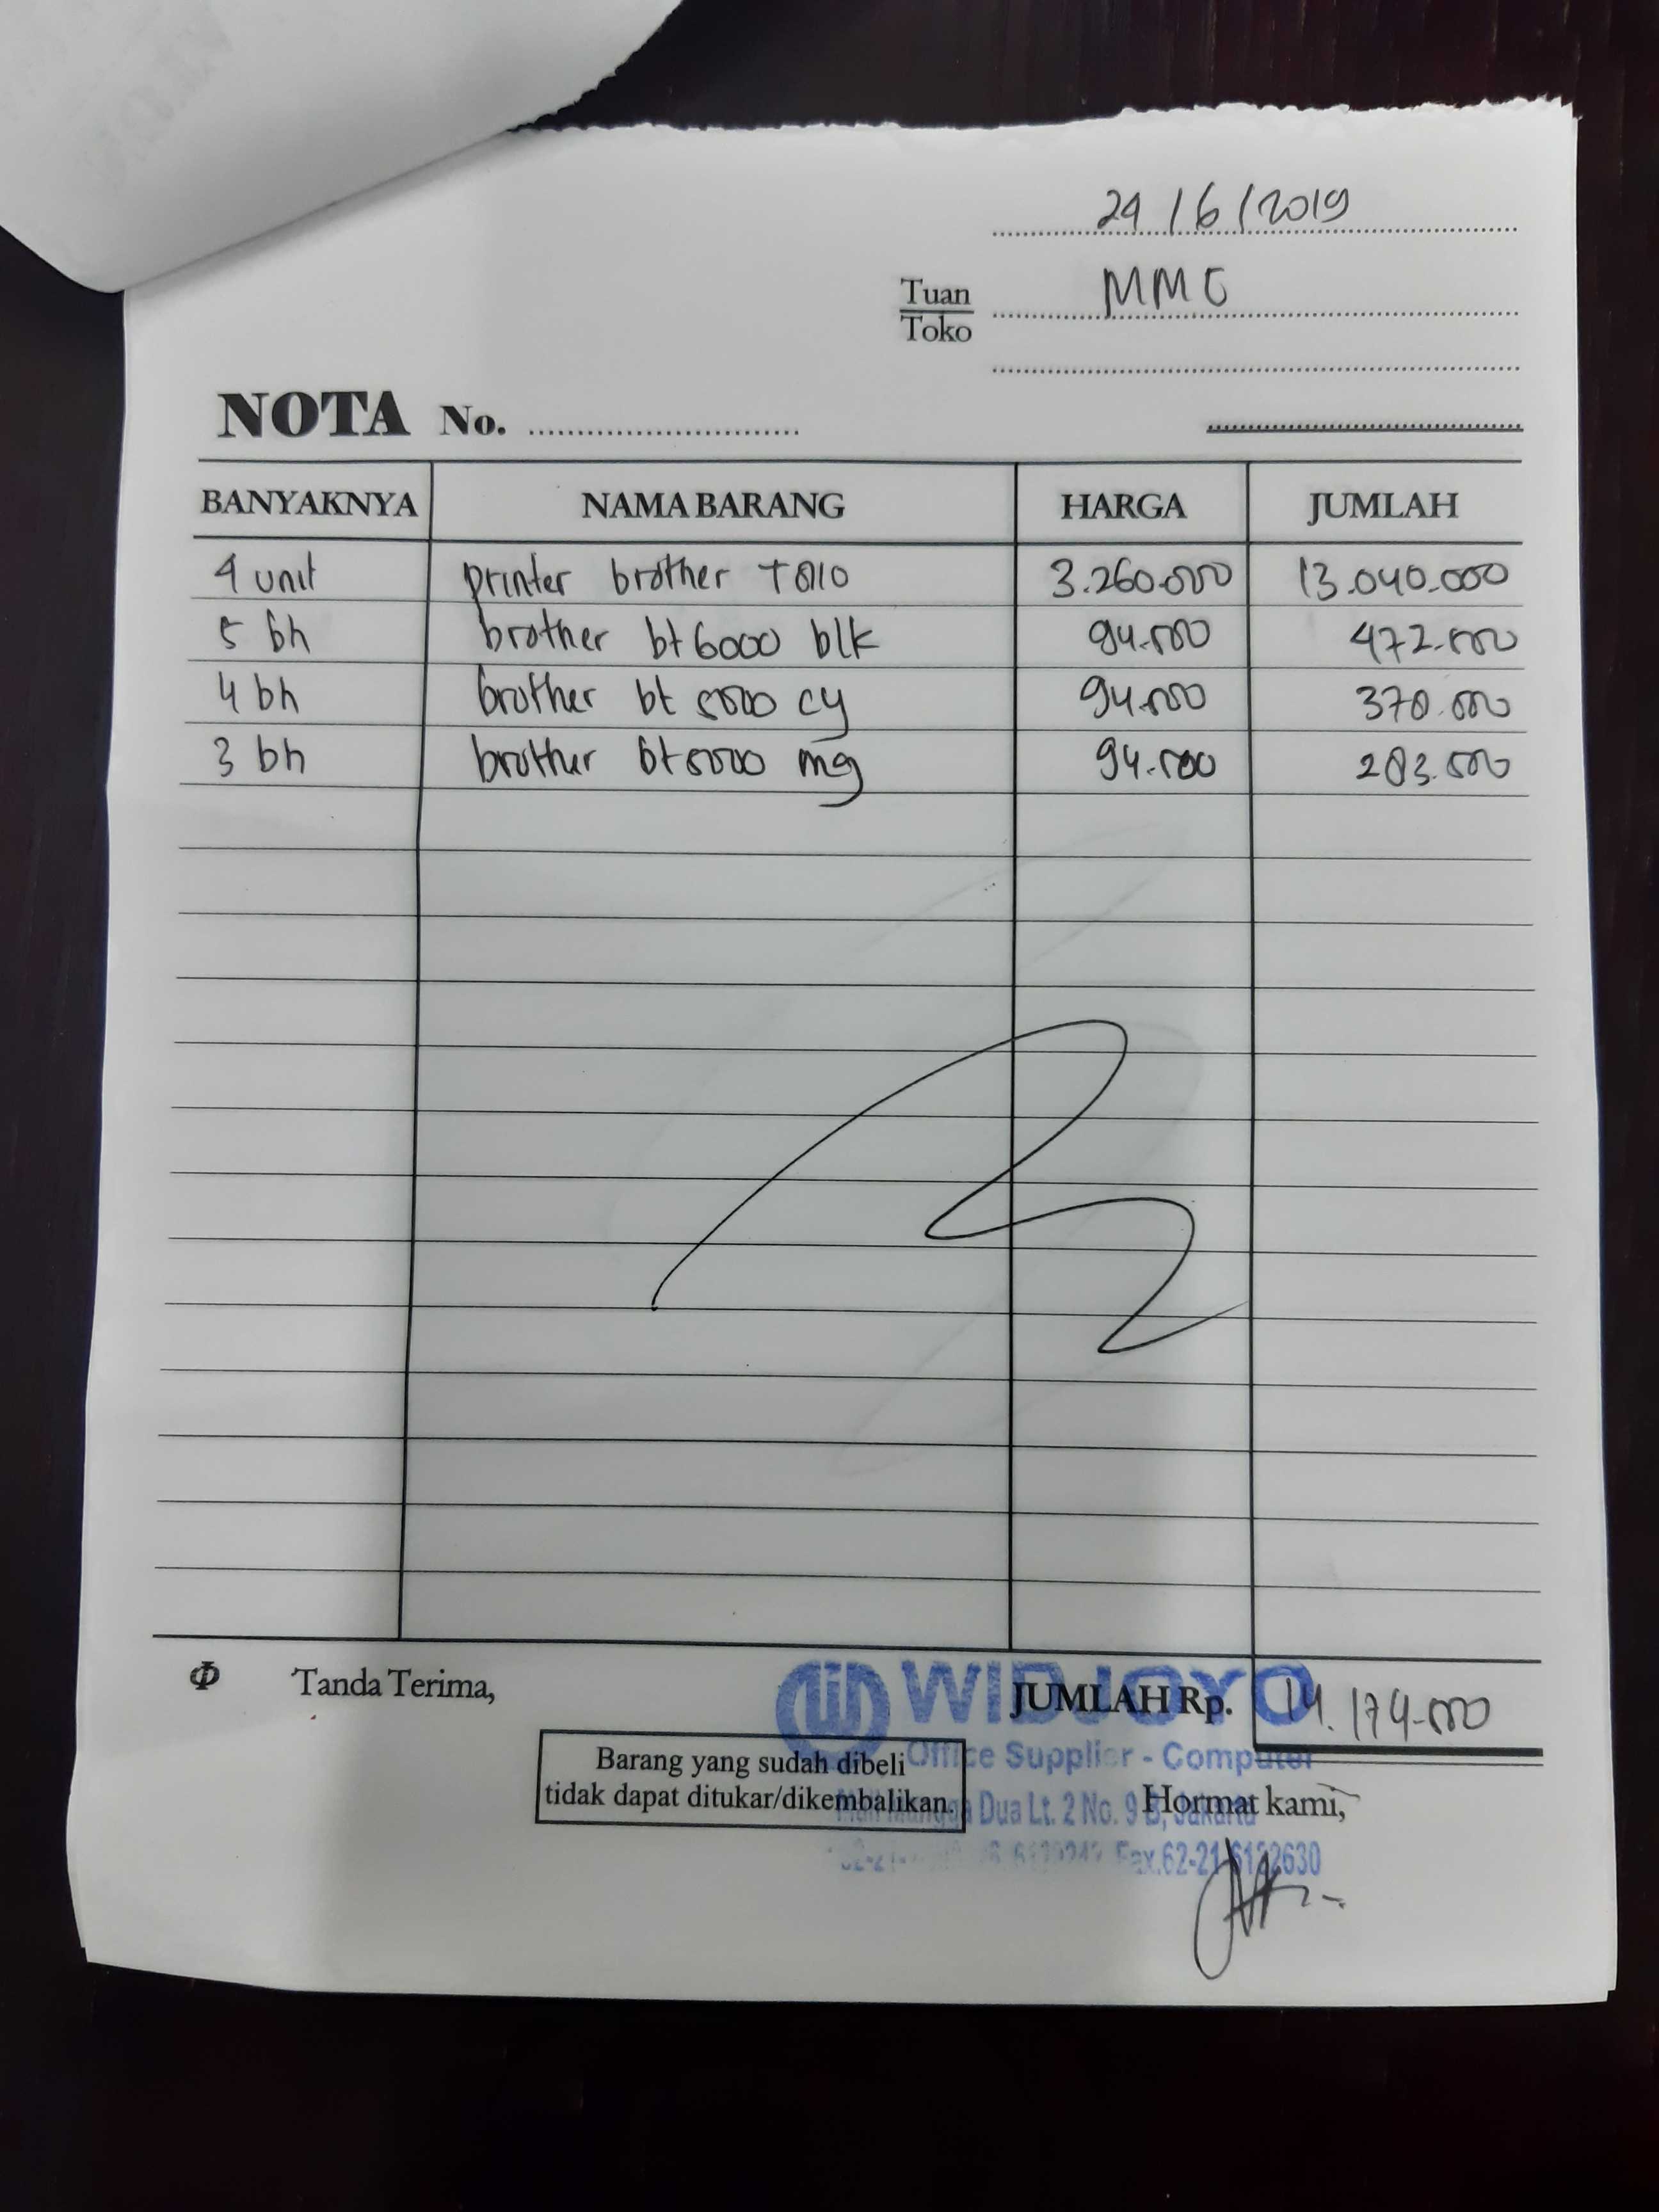 24/6/2019
Tuan MMG
Toko
NOTA No.
BANYAKNYA NAMA BARANG HARGA JUMLAH
4 unit printer brother T810 3.260.000 13.040.000
5 bh brother bt 6000 blk 94.500 472.500
4 bh brother bt 5000 cy 94.500 378.000
3 bh brother bt 5000 mg 94.500 283.500
Φ Tanda Terima, JUMLAH Rp. 14.174.000
WIDJOYO
Office Supplier - Computer
Barang yang sudah dibeli
tidak dapat ditukar/dikembalikan.
Mall Mangga Dua Lt. 2 No. 9 B, Jakarta
Hormat kami,
Fax.62-21 6122630